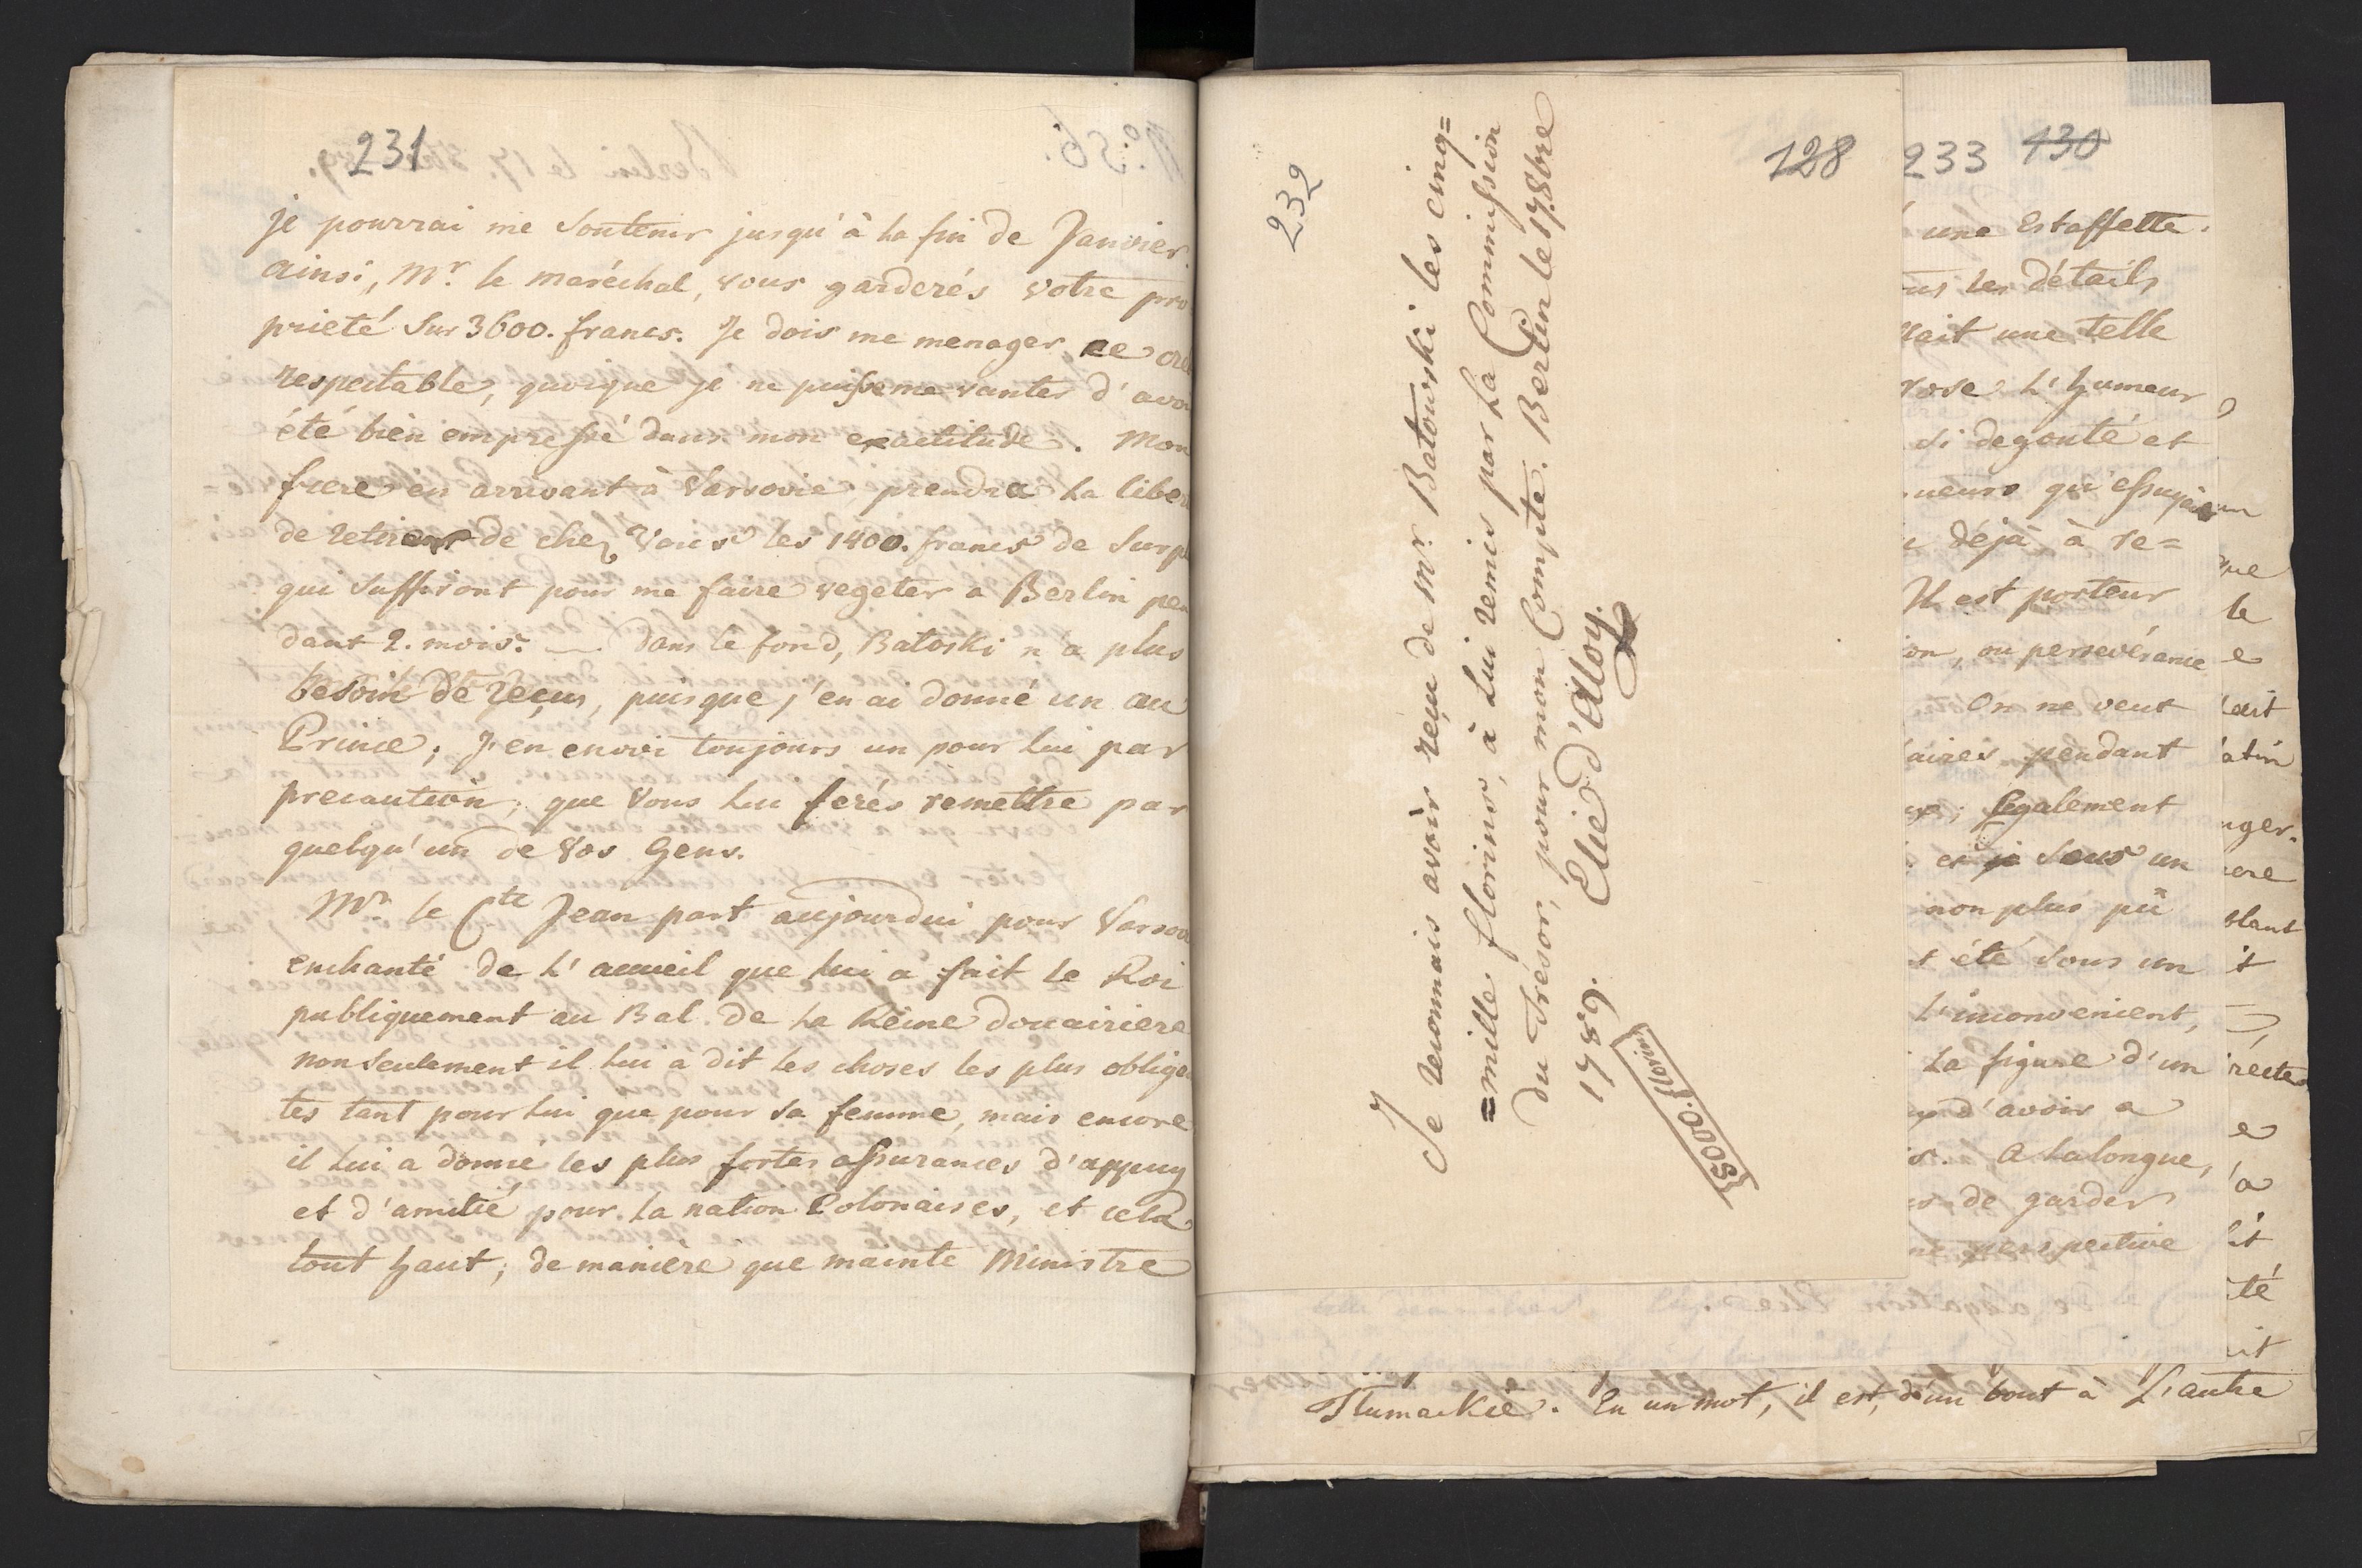 231
je pourrai me soutenir jusqu'à la fin de Janvier.
ainsi, Mr. le maréchal, vous garderés votre pro
prieté sur 3600. francs. Je dois me menager, ce
respectable, quoique je ne puisse me vanter d'avo
été bien empressé dans mon exactitude. Mon
frere en arrivant à Varsovie, prendra la liber
de retirer de chez Vous les 1400. francs de surp
qui suffiront pour me faire vegeter a Berlin pen
dant 2. mois. — Dans le fond, Batoski n'a plus
besoin de reçus, puisque j'en ai donné un au
Prince; J'en envoi toujours un pour lui par
precaution; que Vous lui ferés remettre par
quelqu'un de Vos Gens.
Mr. le Cte Jean part aujourdui pour Varsov
enchanté de l'accueil que lui a fait le Roi
publiquement au Bal de la Reine douairiere
non seulement il lui a dit les choses les plus obligea
tes tant pour lui que pour sa femme, mais encore
il lui a donné les plus fortes assurances d'appuy
et d'amitié pour la nation Polonaises, et cela
tout haut; de maniere que mainte Ministre
232
128
Je reconnais avoir reçu de Mr. Batowski les cinq=
=mille florins, à lui remis par la Commission
du Trésor, pour mon Compte. Berlin le 17. 8bre
1789. Elie d'Aloy.
5000. florins
233 130
une Estaffette.
les détails
une telle
L'humeur
si degouté et
déjà à re=
Il est porteur
ou persevérance
On ne veut
pendant
également
sous un
non plus pû
été sous un
L'inconvenient,
La figure d'un
d'avoir a
A la longue,
de garder
perspective
que
le
e
it
té
Tlumackie. En un mot, il est, d'un bout à L'autre